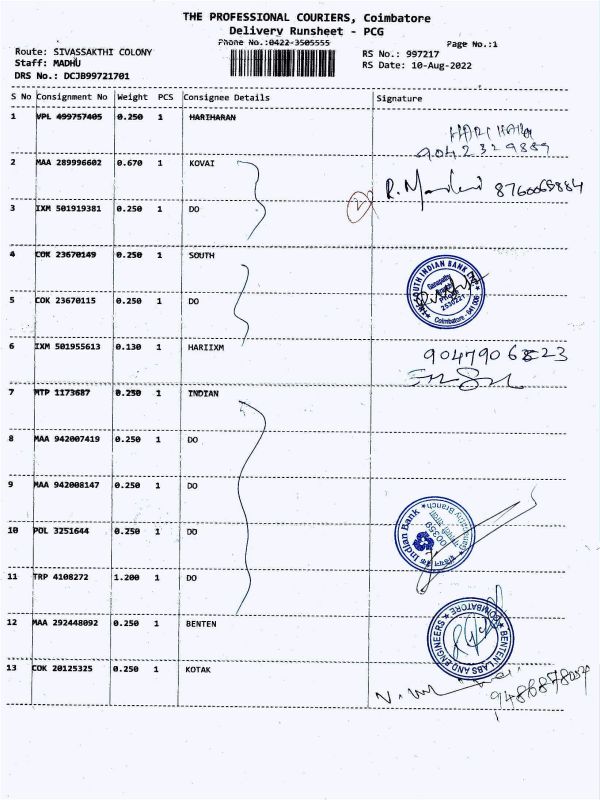 THE PROFESSIONAL COURIERS, Coimbatore
Delivery Runsheet - PCG
Phone No.:0422-3505555
Page No.:1
Route: SIVASSAKTHI COLONY
RS No.: 997217
Staff: MADHU
RS Date: 10-Aug-2022
DRS No.: DCJB99721701
S No Consignment No Weight PCS Consignee Details Signature
1 VPL 499757405 0.250 1 HARIHARAN
HARI HARAN
9042329889
2 MAA 289996602 0.670 1 KOVAI
8760065884
3 IXM 501919381 0.250 1 DO
4 COK 23670149 0.250 1 SOUTH
THE SOUTH INDIAN BANK LTD
Ganapathy
Coimbatore - 641 006
5 COK 23670115 0.250 1 DO
6 IXM 501955613 0.130 1 HARIIXM
7 MTP 1173687 0.250 1 INDIAN
8 MAA 942007419 0.250 1 DO
9 MAA 942008147 0.250 1 DO
10 POL 3251644 0.250 1 DO
Indian Bank
11 TRP 4108272 1.200 1 DO
12 MAA 292448092 0.250 1 BENTEN
BENTEN LABS AND ENGINEERS
COIMBATORE
13 COK 20125325 0.250 1 KOTAK